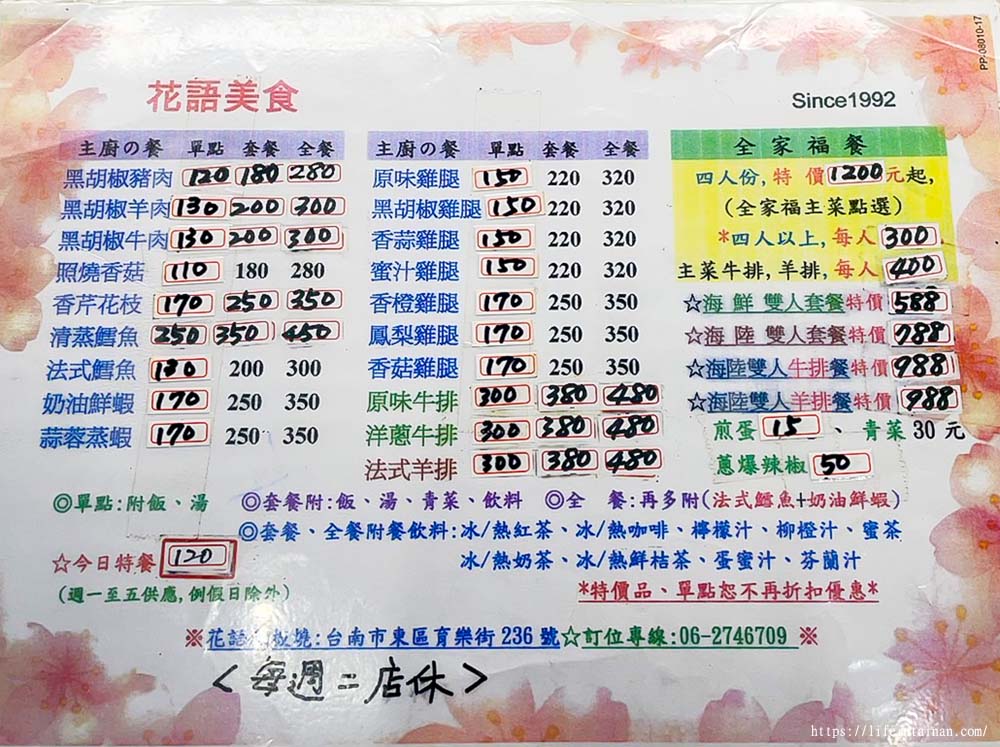 PP-08010-17
花語美食
Since1992
主廚の餐 單點 套餐 全餐
黑胡椒豬肉 120 180 280
黑胡椒羊肉 130 200 300
黑胡椒牛肉 130 200 300
照燒香菇 110 180 280
香芹花枝 170 250 350
清蒸鱈魚 250 350 450
法式鱈魚 130 200 300
奶油鮮蝦 170 250 350
蒜蓉蒸蝦 170 250 350
主廚の餐 單點 套餐 全餐
原味雞腿 150 220 320
黑胡椒雞腿 150 220 320
香蒜雞腿 150 220 320
蜜汁雞腿 150 220 320
香橙雞腿 170 250 350
鳳梨雞腿 170 250 350
香菇雞腿 170 250 350
原味牛排 300 380 480
洋蔥牛排 300 380 480
法式羊排 300 380 480
全家福餐
四人份,特 價1200元起,
(全家福主菜點選)
*四人以上,每人300
主菜牛排,羊排,每人400
☆海 鮮 雙人套餐特價588
☆海 陸 雙人套餐特價788
☆海陸雙人牛排餐特價988
☆海陸雙人羊排餐特價988
煎蛋 15 、青菜30 元
蔥爆辣椒 50
◎單點:附飯、湯 ◎套餐附:飯、湯、青菜、飲料 ◎全 餐:再多附(法式鱈魚+奶油鮮蝦)
◎套餐、全餐附餐飲料:冰/熱紅茶、冰/熱咖啡、檸檬汁、柳橙汁、蜜茶
冰/熱奶茶、冰/熱鮮桔茶、蛋蜜汁、芬蘭汁
☆今日特餐 120
(週一至五供應,例假日除外)
*特價品、單點恕不再折扣優惠*
※花語 板燒:台南市東區育樂街236號☆訂位專線:06-2746709 ※
<每週二店休>